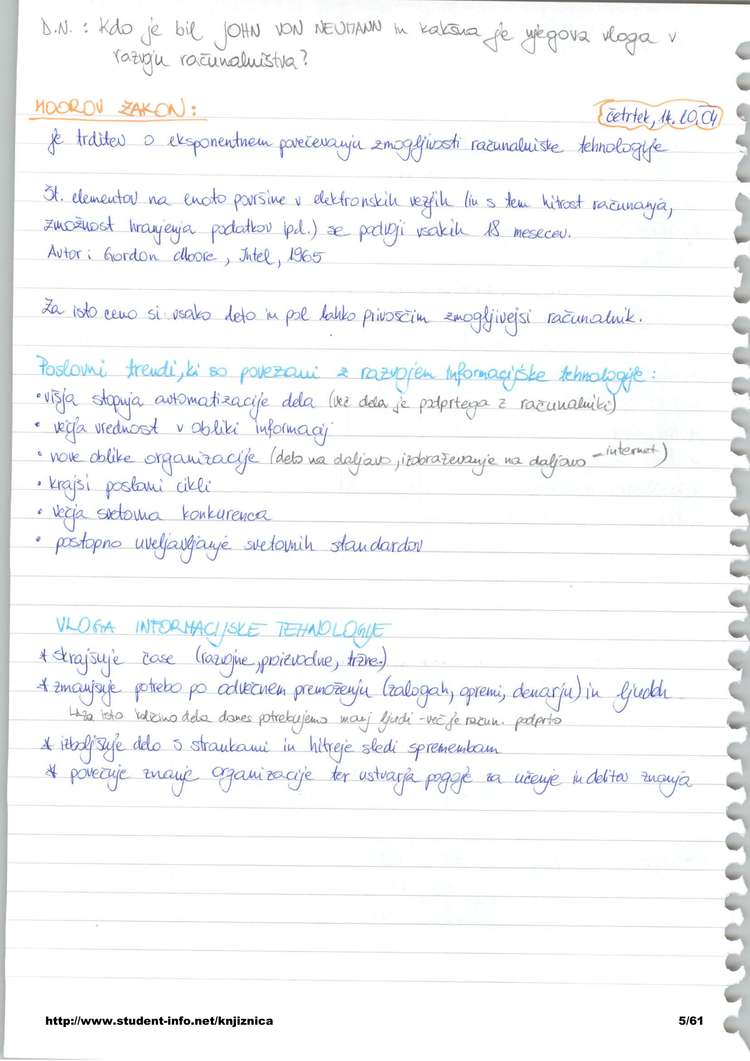 D.N. : Kdo je bil JOHN VON NEUMANN in kakšna je njegova vloga v
razvoju računalništva?
MOOROV ZAKON:
četrtek, 14.10.04
je trditev o eksponentnem povečevanju zmogljivosti računalniške tehnologije
Št. elementov na enoto površine v elektronskih vezjih (in s tem hitrost računanja,
zmožnost hranjenja podatkov ipd.) se podvoji vsakih 18 mesecev.
Avtor: Gordon Moore, Intel, 1965
Za isto ceno si vsako leto in pol lahko privoščim zmogljivejši računalnik.
Poslovni trendi, ki so povezani z razvojem informacijske tehnologije:
• višja stopnja avtomatizacije dela (več dela je podprtega z računalniki)
• večja vrednost v obliki informacij
• nove oblike organizacije (delo na daljavo, izobraževanje na daljavo - internet)
• krajši poslovni cikli
• večja svetovna konkurenca
• postopno uveljavljanje svetovnih standardov
VLOGA INFORMACIJSKE TEHNOLOGIJE
* skrajšuje čase (razvojne, proizvodne, tržne)
* zmanjšuje potrebo po odvečnem premoženju (zalogah, opremi, denarju) in ljudeh
↳ za isto količino dela danes potrebujemo manj ljudi - več je račun. podprto
* izboljšuje delo s strankami in hitreje sledi spremembam
* povečuje znanje organizacije ter ustvarja pogoje za učenje in delitev znanja
http://www.student-info.net/knjiznica
5/61